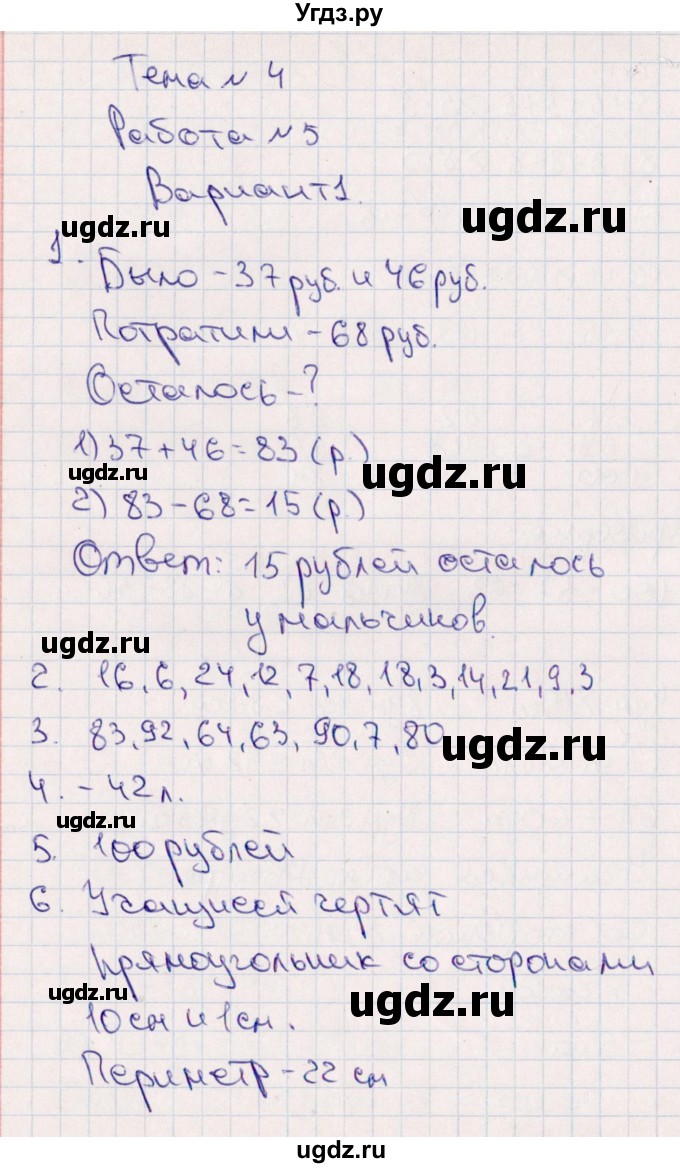 Угдз.ру
Тема N 4
Работа N 5
Вариант 1.
ugdz.ru
ugdz.ru
1. Было - 37 руб. и 46 руб.
Потратили - 68 руб.
Осталось - ?
1) 37 + 46 = 83 (р.)
ugdz.ru
ugdz.ru
2) 83 - 68 = 15 (р.)
Ответ: 15 рублей осталось
у мальчиков.
ugdz.ru
2. 16, 6, 24, 12, 7, 18, 18, 3, 14, 21, 9, 3
3. 83, 92, 64, 63, 90, 7, 80
ugdz.ru
4. - 42 л.
ugdz.ru
5. 100 рублей
6. Учащиеся чертят
прямоугольник со сторонами
ugdz.ru
ugdz.ru
10 см и 1 см.
Периметр - 22 см
ugdz.ru